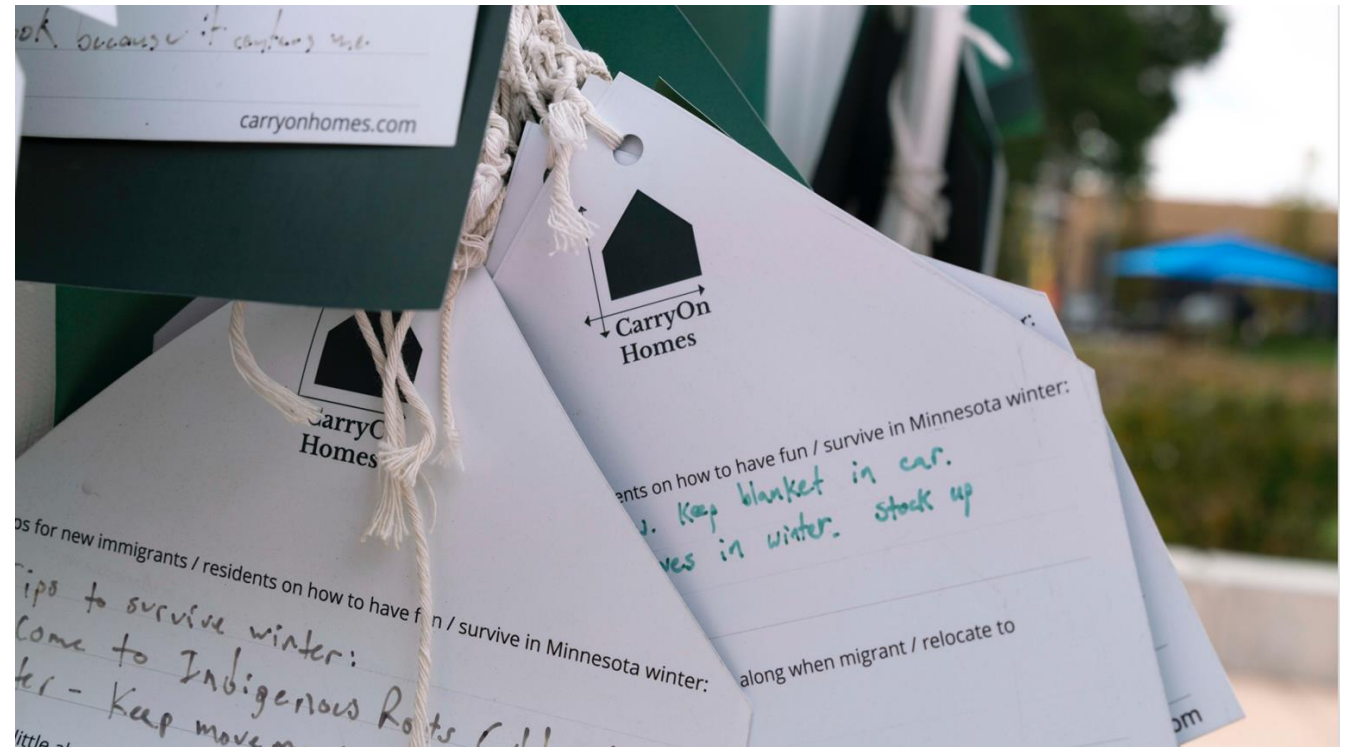 because it
carryonhomes.com
CarryOn
Homes
r:
ents on how to have fun / survive in Minnesota winter:
. Keep blanket in car.
ves in winter. stock up
along when migrant / relocate to
om
CarryO
Homes
ps for new immigrants / residents on how to have f n / survive in Minnesota winter:
ips to survive winter:
Come to Indigenous Roots
ter - Keep
little